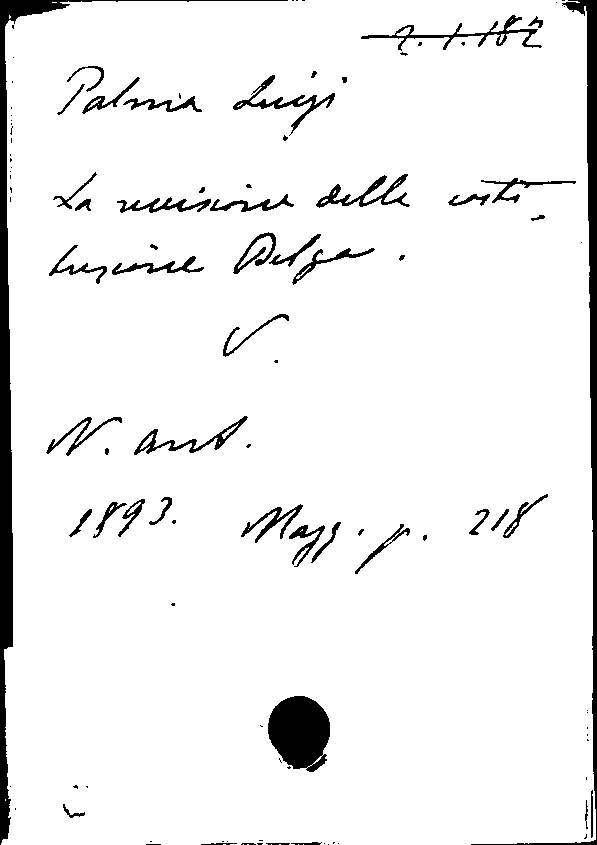 2.1.182
Palma Luigi
La revisione delle costi-
tuzione Belga.
V.
N. ant.
1893. Magg. p. 218